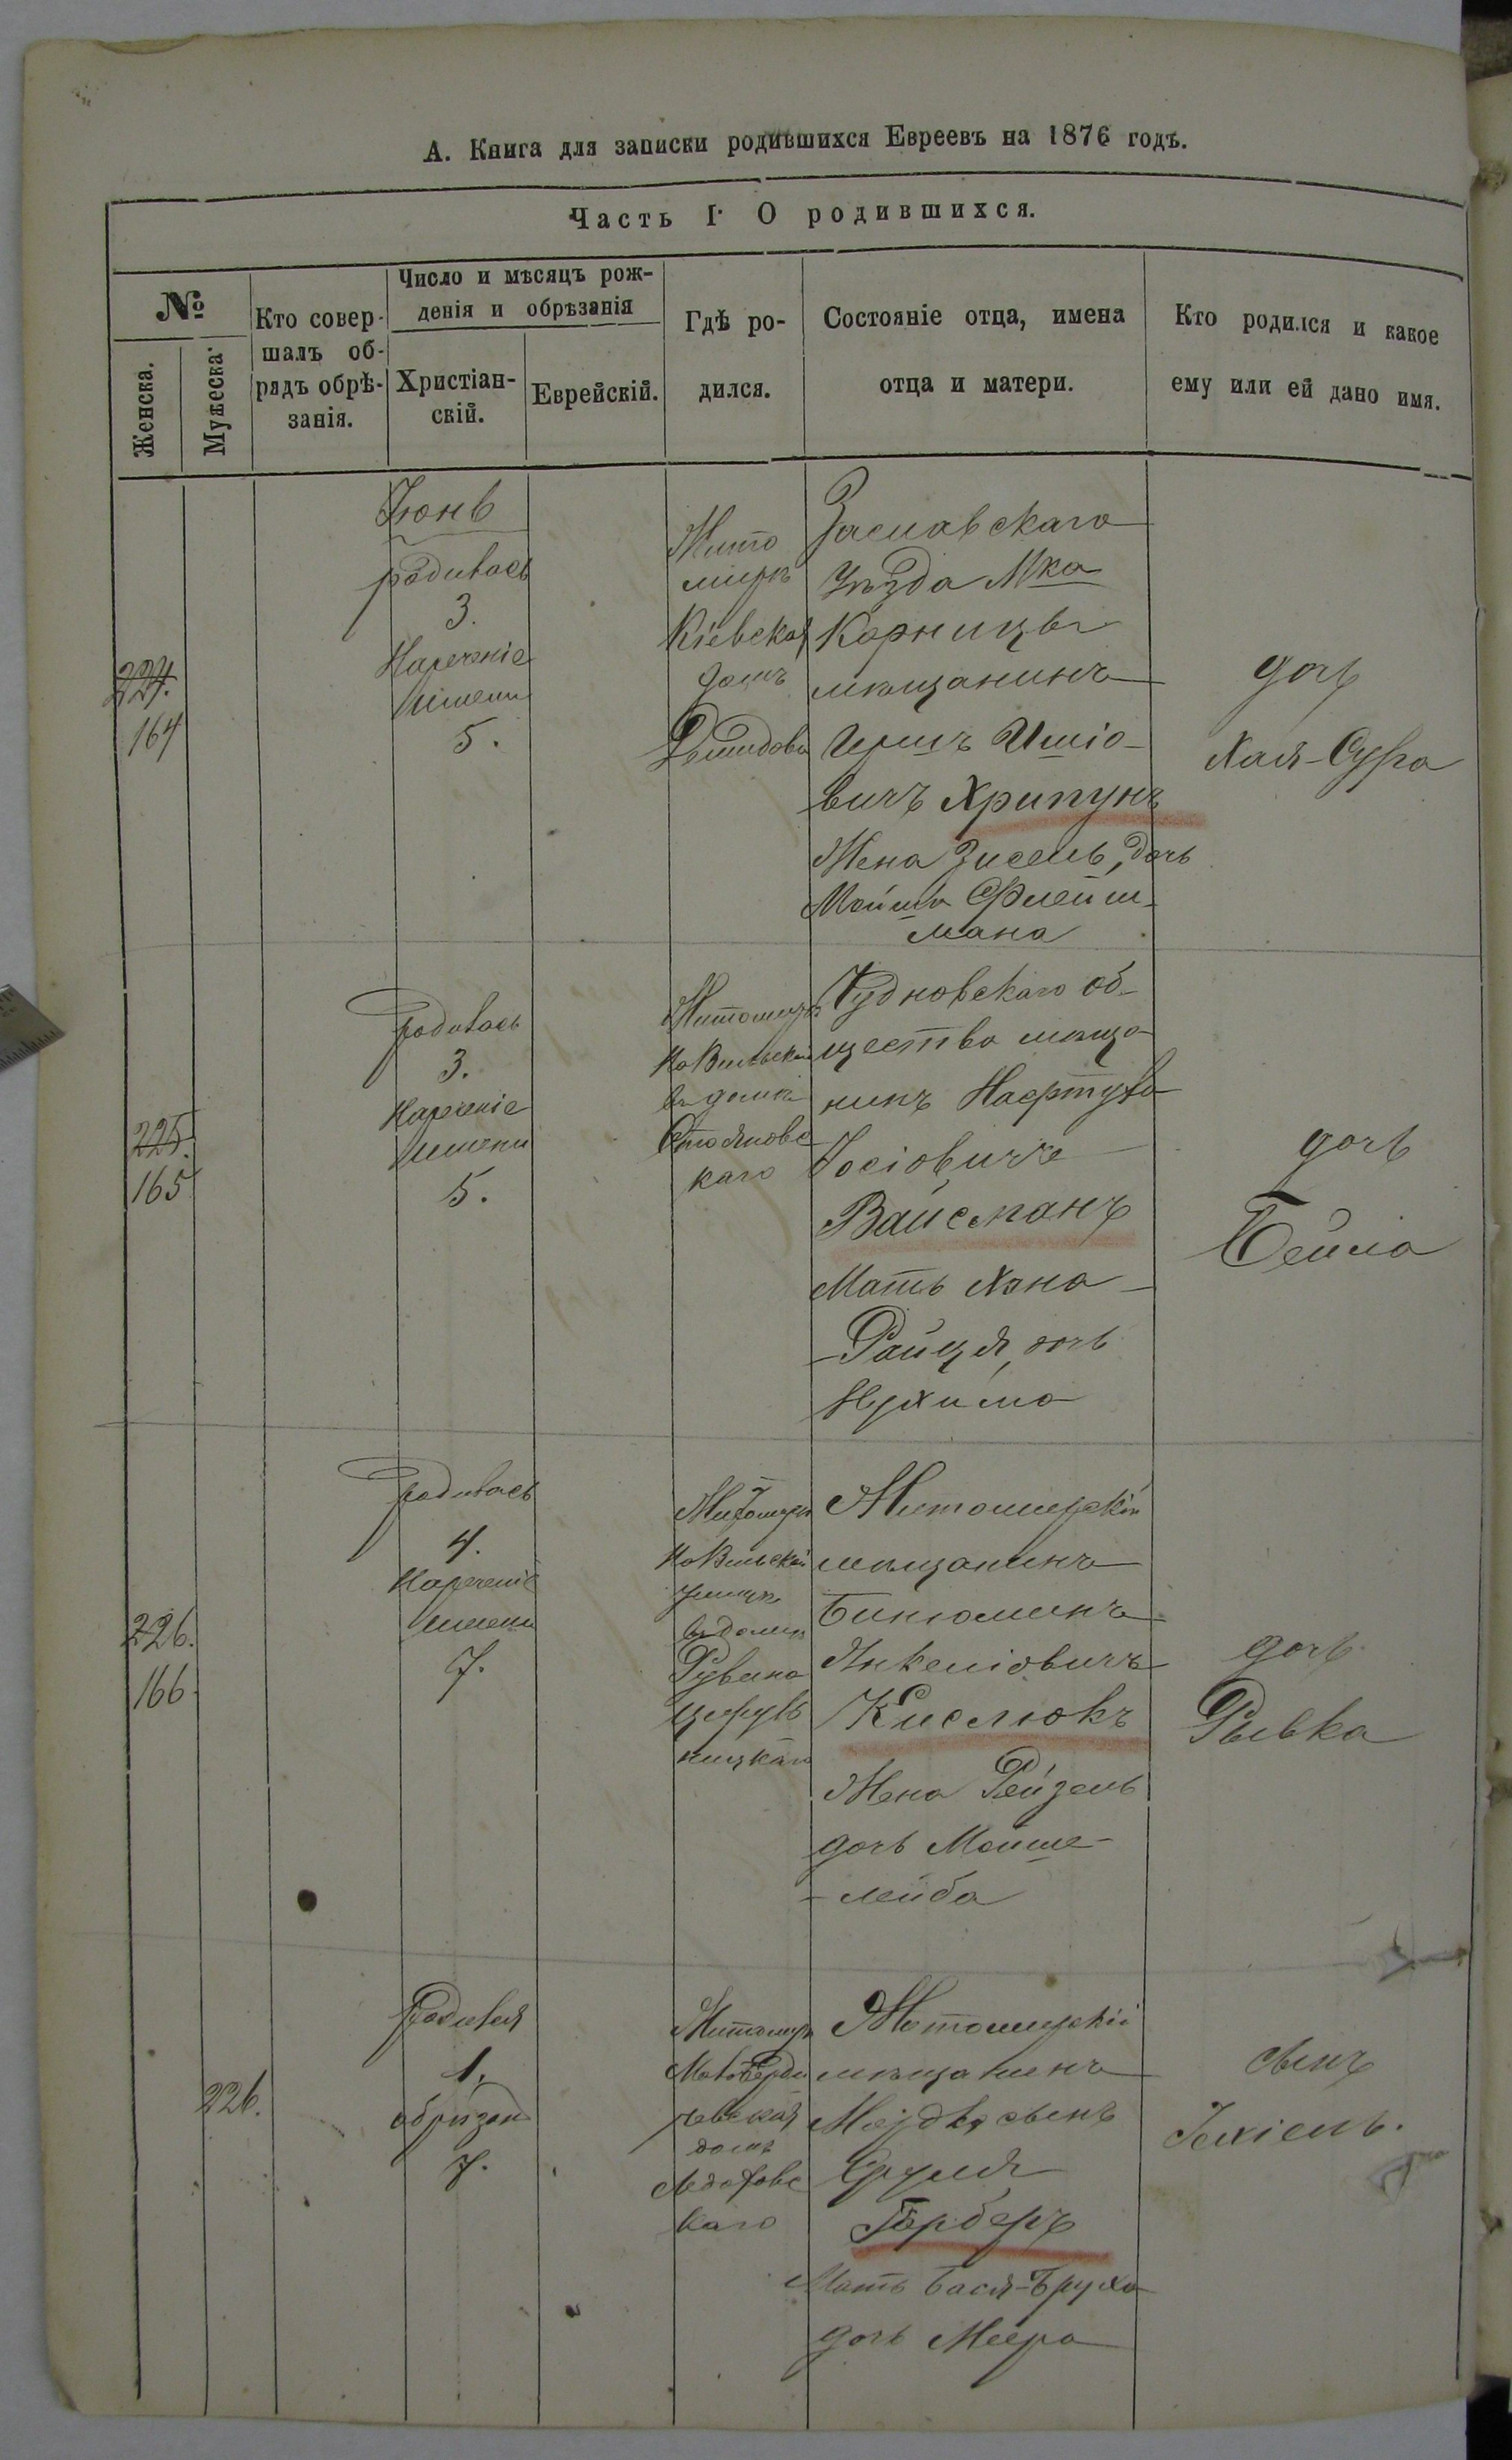 А. Книга для записки родившихся Евреевъ на 1876 годъ.
Часть I. О родившихся.
№
Женска.
Мужеска.
Кто совер-
шалъ об-
рядъ обрѣ-
занія.
Число и мѣсяцъ рож-
денія и обрѣзанія
Христіан-
скій.
Еврейскій.
Гдѣ ро-
дился.
Состояніе отца, имена
отца и матери.
Кто родился и какое
ему или ей дано имя.
224.
164
Іюнь
родилась
3.
Нареченіе
имени
5.
Жито
миръ
Кіевская
домъ
Демидова
Заславскаго
уѣзда Мка
Корницы
мѣщанинъ
Гершъ Ицıо-
вичъ Хрипунъ
Жена Зисель, дочь
Мойша Флейш-
мана
дочь
Хая-Сура
225.
165
родилась
3.
Нареченіе
имени
5.
Житомиръ
на Вильской
въ домѣ
Стояновс
каго
Чудновскаго об-
щества мѣща-
нинъ Нафтула
Іосіовичъ
Вайсманъ
Мать Хана
-Райця, дочь
Нухима
дочь
Бейла
226.
166
родилась
4.
Нареченіе
имени
7.
Житомиръ
на Вильской
улицѣ
въ домѣ
Рувина
ницкаго
Житомирскій
мѣщанинъ
Бинюминъ
Янкеліовичъ
Кислюкъ
Жена Рейзель
дочь Мойше-
-лейба
дочь
Рывка
226.
Родился
1.
обрѣзан
7.
Житомиръ
Мало Берди
чевская
домъ
каго
Житомирскій
мѣщанинъ
Мордко сынъ
Сруля
Герберъ
Мать Бася-Бруха
дочь Меера
сынъ
Іехіель.